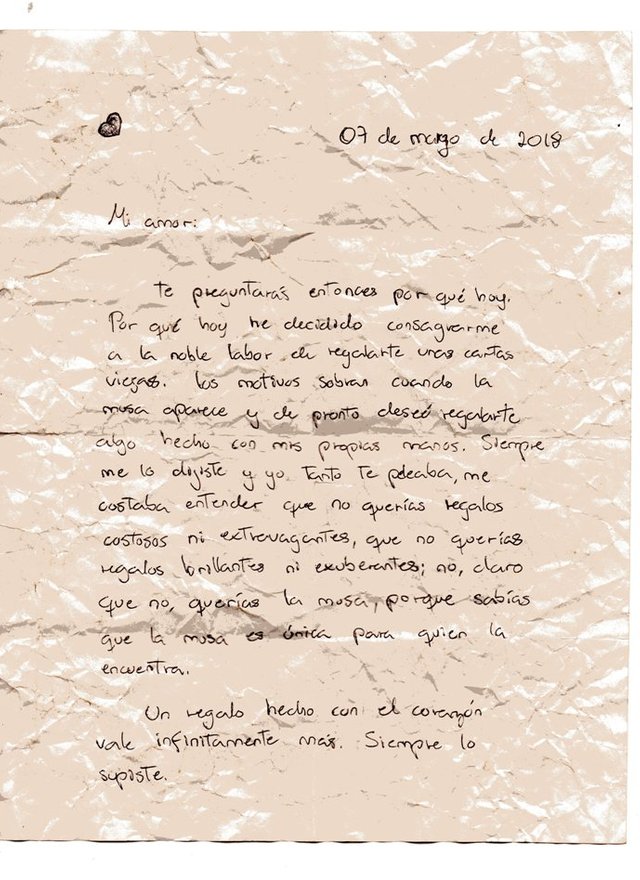 07 de marzo de 2018
Mi amor:
Te preguntarás entonces por qué hoy.
Por qué hoy he decidido consagrarme
a la noble labor de regalarte unas cartas
viejas. Los motivos sobran cuando la
musa aparece y de pronto deseó regalarte
algo hecho con mis propias manos. Siempre
me lo dijiste y yo tanto te peleaba, me
costaba entender que no querías regalos
costosos ni extravagantes, que no querías
regalos brillantes ni exuberantes; no, claro
que no, querías la musa, porque sabías
que la musa es única para quien la
encuentra.
Un regalo hecho con el corazón
vale infinitamente más. Siempre lo
supiste.